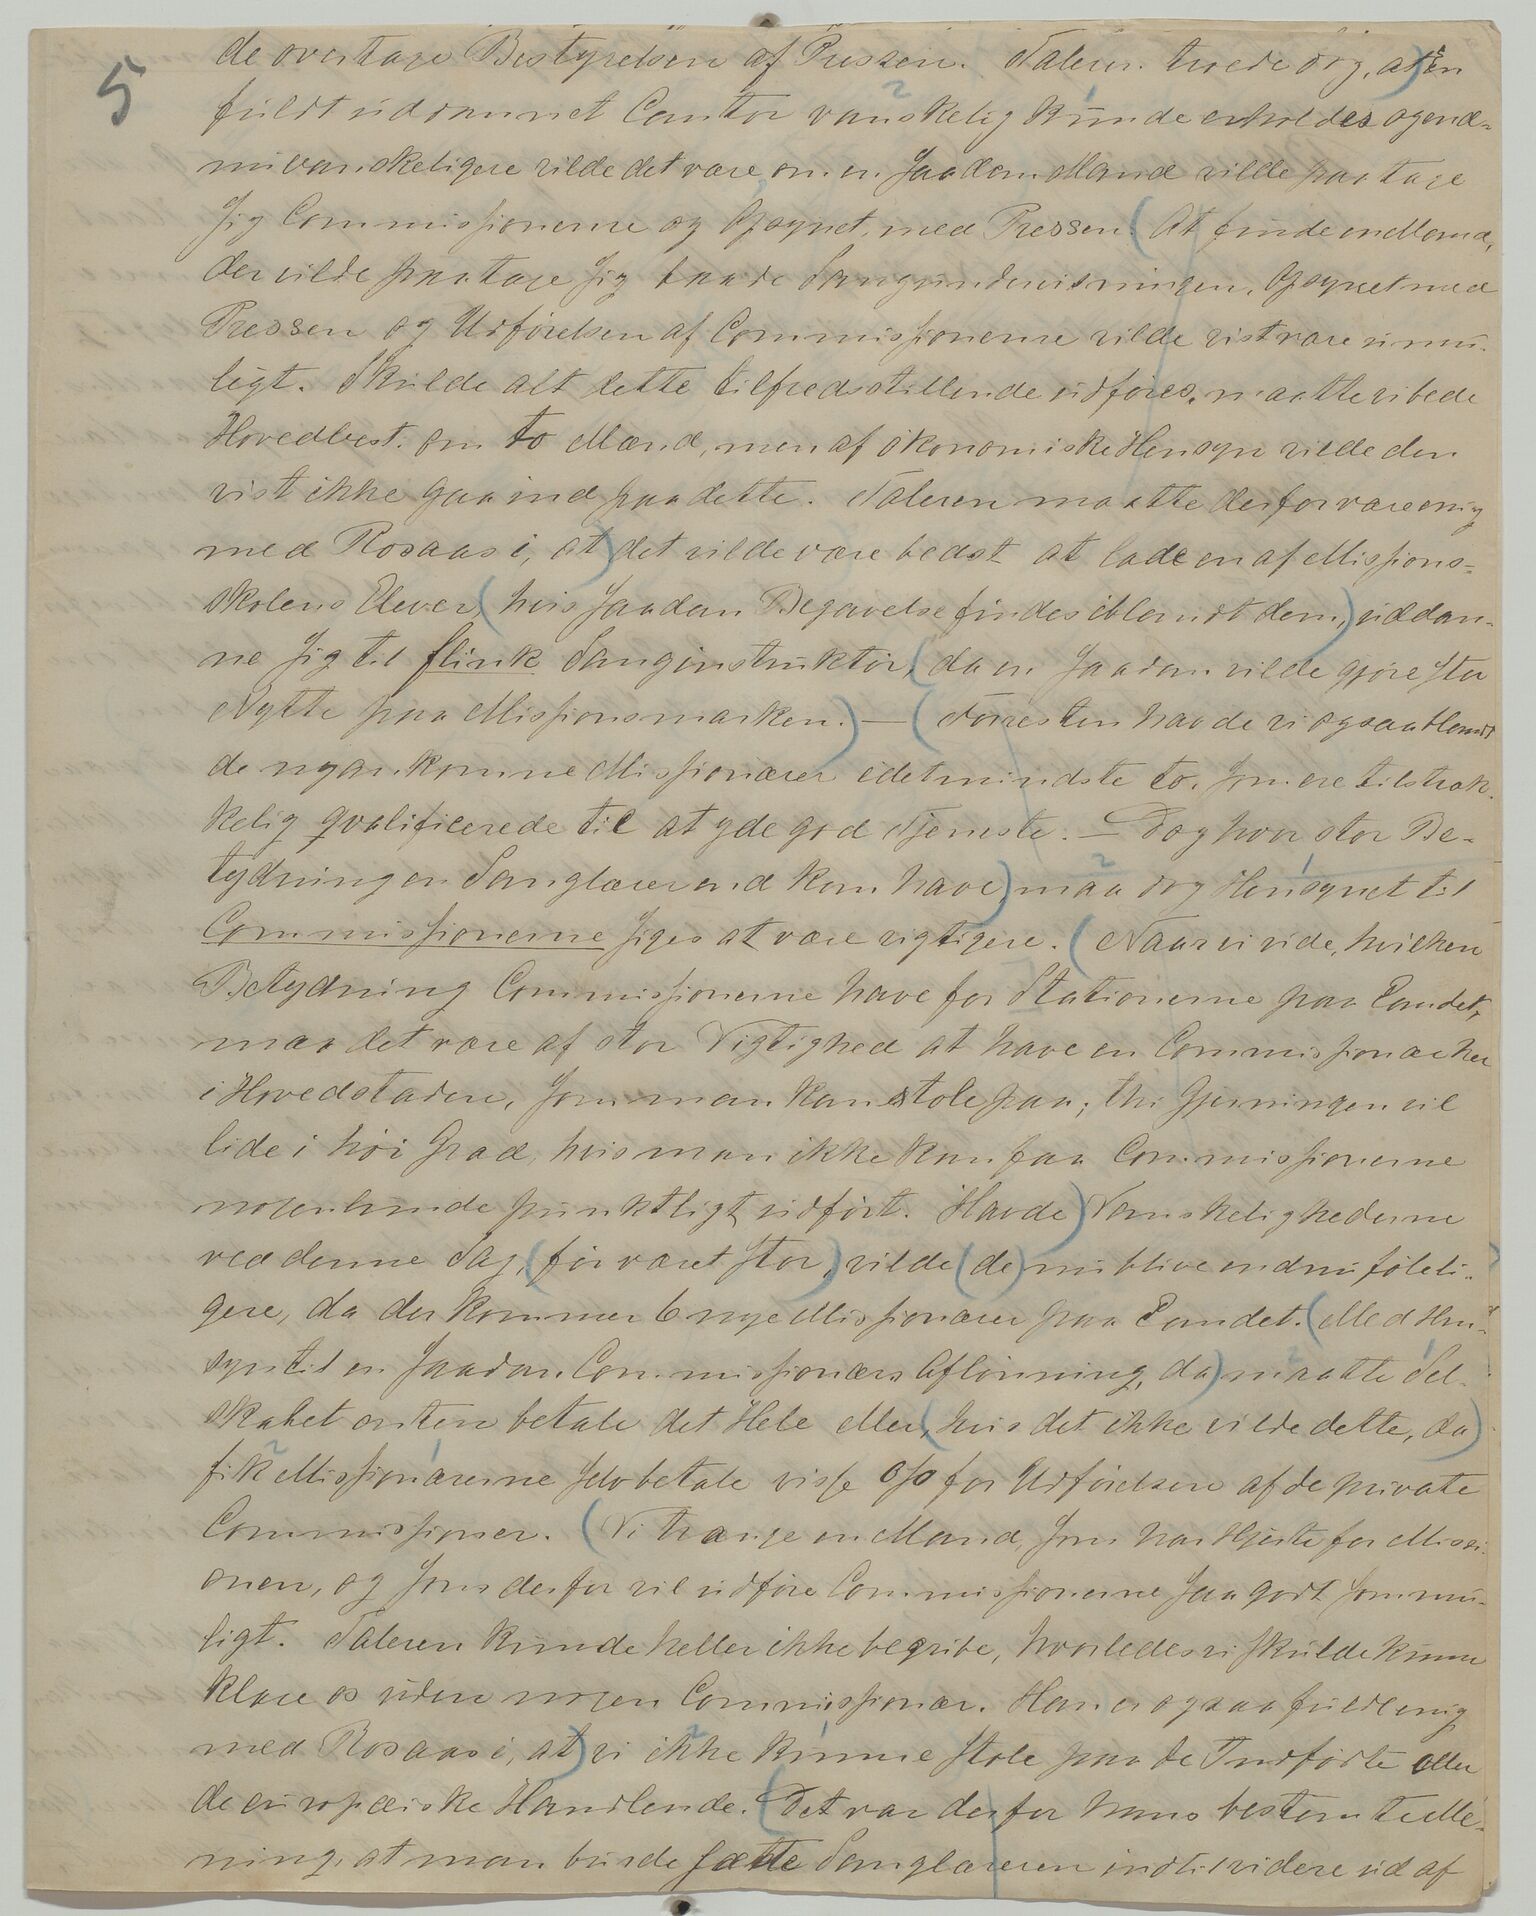 5
de overtage Bestyrelsen af Pressen. Taleren troede dog, at en
fuldt uddannet Cantor vanskelig kunde erholdes og end-
nu vanskeligere vilde det være om en saadan Mand vilde paatage
sig Commissionerne og Opsynet med Pressen. (At finde en Mand,
der vilde paatage sig baade Sangundervisningen, Opsynet med
Pressen og Udførelsen af Commissionerne vilde vist være umu-
ligt. Skulde alt dette tilfredsstillende udføres, maatte vi bede
Hovedbest. om to Mænd, men af økonomiske Hensyn vilde den
vist ikke gaa ind paa dette. Taleren maatte derfor være enig
med Rosaas i, at) det vilde være bedst at lade en af Missions-
skolens Elever, (hvis saadan Begavelse findes iblandt dem,) uddan-
ne sig til flink Sanginstruktør, (da en saadan vilde gjøre stor
Nytte paa Missionsmarken.) — (Forresten havde vi ogsaa blandt
de nyankomne Missionærer idetmindste to, som ere tilstræk-
kelig qvalificerede til at yde god Tjeneste. — Dog hvor stor Be-
tydning en Sanglærer end kan have,) maa dog Hensynet til
Commissionerne siges at være vigtigere. (Naar vi vide, hvilken
Betydning Commissionerne have for Stationerne paa Landet,
maa det være af stor Vigtighed at have en Commissionær her
i Hovedstaden, som man kan stole paa; thi Gjerningen vil
lide i høi Grad, hvis man ikke kan faa Commissionerne
nogenlunde punktligt udført. Havde) Vanskelighederne
ved denne Sag, (før været stor,) vilde (de) nu blive endnu føleli-
gere, da der kommer 6 nye Missionærer paa Landet. (Med Hen-
syn til en saadan Commissionærs Aflønning, da) maatte Sel-
skabet enten betale det Hele eller, (hvis det ikke vilde dette, da)
fik Missionærerne selv betale visse o/o for Udførelsen af de private
Commissioner. (Vi trænge en Mand, som har Hjerte for Missi-
onen, og som derfor vil udføre Commissionerne saa godt som mu-
ligt. Taleren kunde heller ikke begribe, hvorledes vi skulde kunne
klare os uden nogen Commissionær. Han er ogsaa fuldt enig
med Rosaas i, at) vi ikke kunne stole paa de Indfødte eller
de europæiske Handlende. (Det var derfor hans bestemte Me-
ning, at man burde sætte Sanglæreren indtil videre ud af